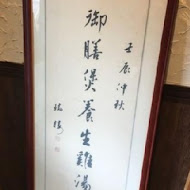 壬辰沖秋
御膳煲養生雞湯